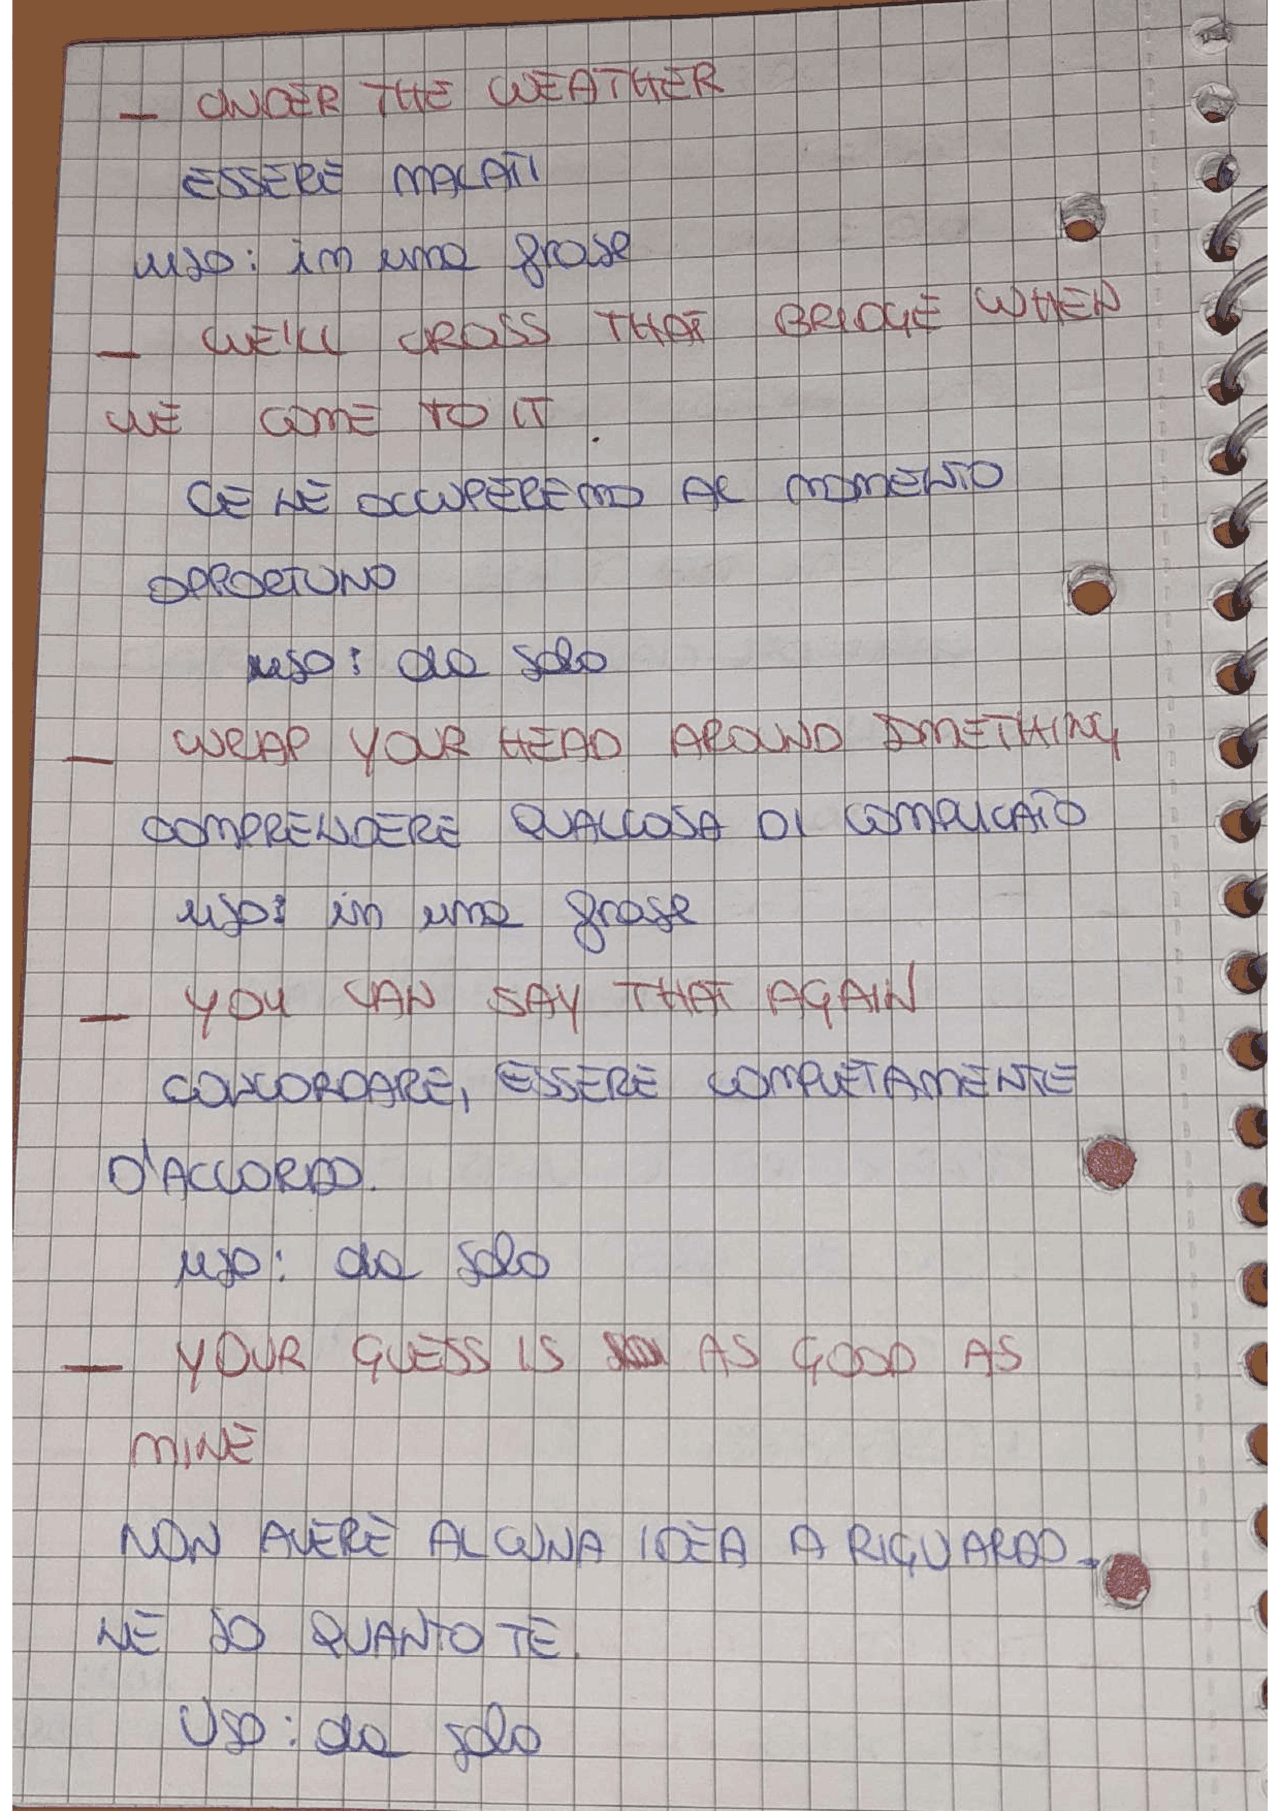 — UNDER THE WEATHER
ESSERE MALATI
uso: in una frase
— WE'LL CROSS THAT BRIDGE WHEN
WE COME TO IT.
CE NE OCCUPEREMO AL MOMENTO
OPPORTUNO
uso: da solo
— WRAP YOUR HEAD AROUND SOMETHING
COMPRENDERE QUALCOSA DI COMPLICATO
uso: in una frase
— YOU CAN SAY THAT AGAIN
CONCORDARE, ESSERE COMPLETAMENTE
D'ACCORDO.
uso: da solo
— YOUR GUESS IS AS GOOD AS
MINE
NON AVERE ALCUNA IDEA A RIGUARDO.
NE SO QUANTO TE.
Uso: da solo